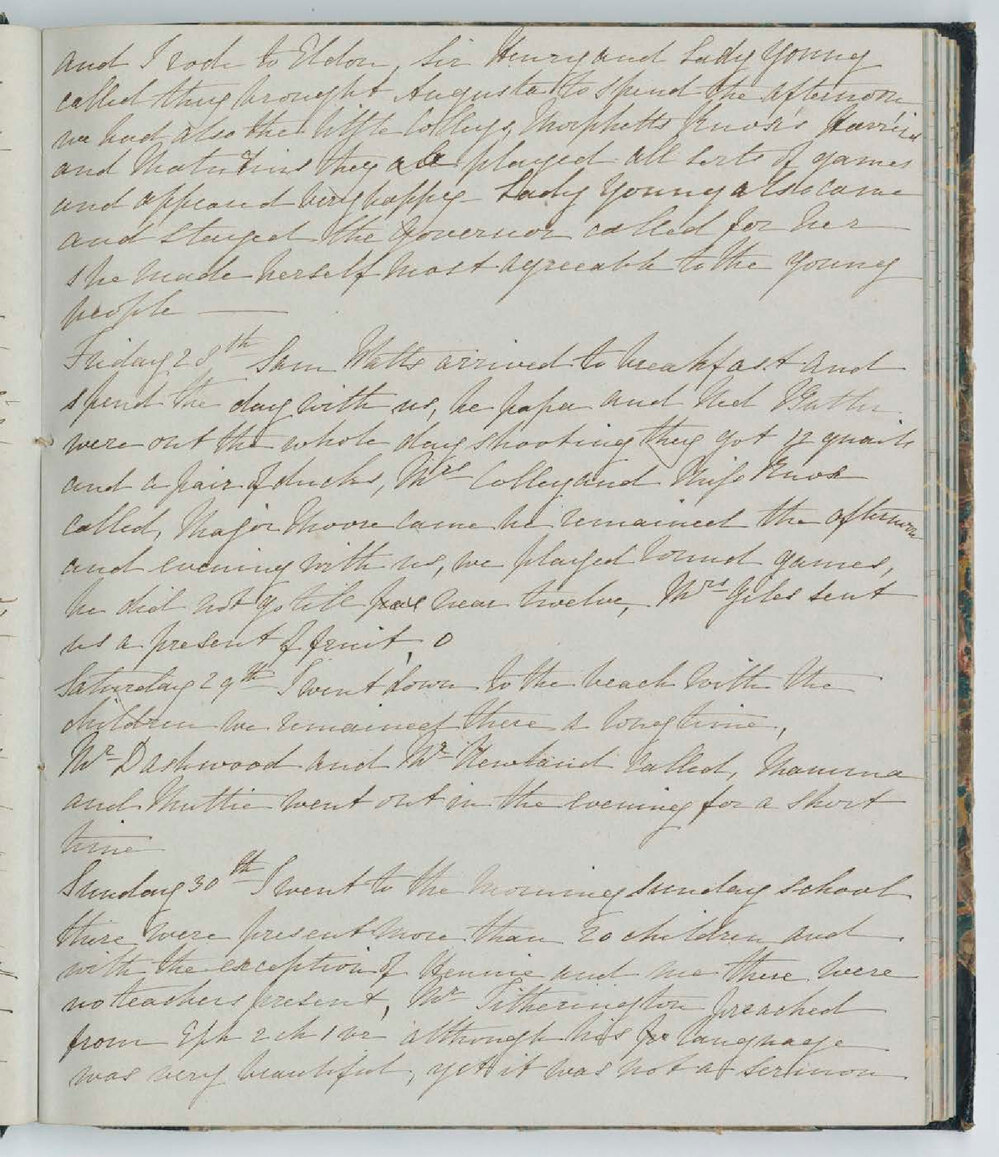 and I rode to Eldon, Sir Henry and Lady Young
called they brought Augusta to spend the afternoon
we had also the little Colleys, Morphetts Knox's
and Maturins they all played all sorts of games
and appeared very happy Lady Young also came
and stayed the Governor called for her
she made herself most agreeable to the young
people —
Friday 28th Sam Watts arrived to breakfast and
spend the day with us, he papa and Ned
were out the whole day shooting they got 12 quails
and a pair of ducks, Mrs Colley and Miss Knox
called, Major Moore came he remained the afternoon
and evening with us, we played round games,
he did not go till near twelve, Mrs Giles sent
us a present of fruit,
Saturday 29th I went down to the beach with the
children we remained there a long time,
Mr Dashwood and Mr Newland called, Mamma
and Muttie went out in the evening for a short
time
Sunday 30th I went to the morning sunday school
there were present more than 20 children and
with the exception of Hennie and me there were
no teachers present, Mr Titherington preached
from Eph 2 ch 1 ve although his language
was very beautiful, yet it was not a sermon